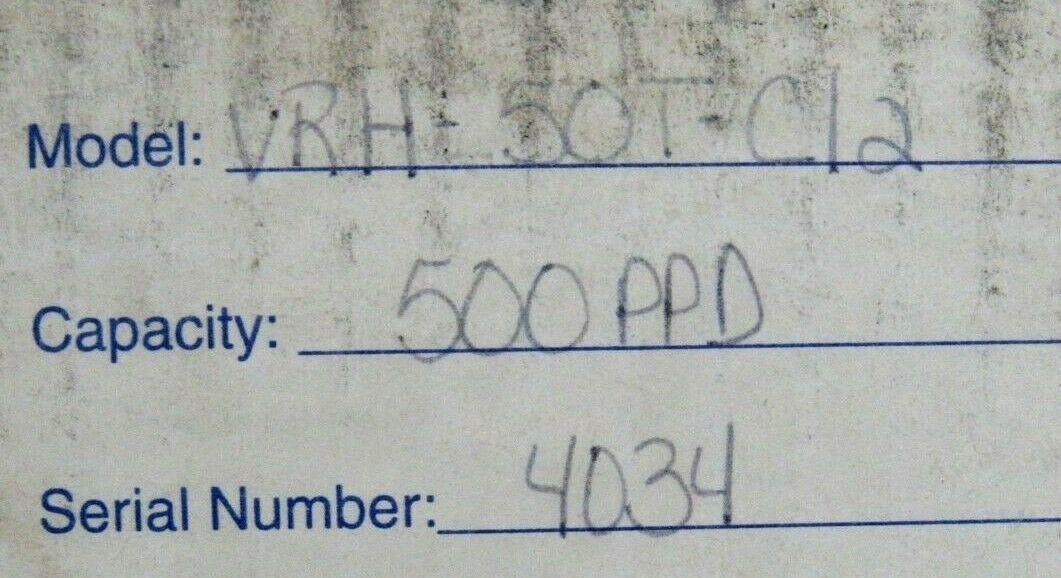 Model: VRH-50T-Cl2
Capacity: 500 PPD
Serial Number: 4034